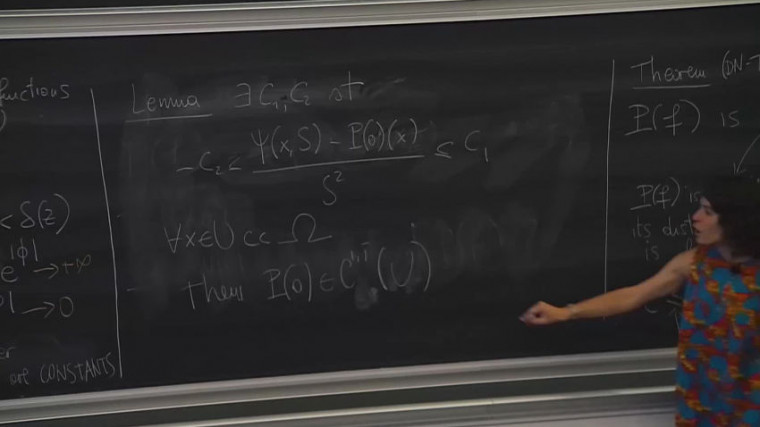 functions
)
< δ(z)
|ϕ|
e → +∞
| → 0
are CONSTANTS
Lemma ∃ C₁, C₂ st
-C₂ ≤ (Ψ(x,S) - P(0)(x)) / S² ≤ C₁
∀x∈U ⊂⊂ Ω
Then P(0) ∈ C^{1,1}(U)
Theorem (DN-T
P(f) is
P(f) is
its dist
is